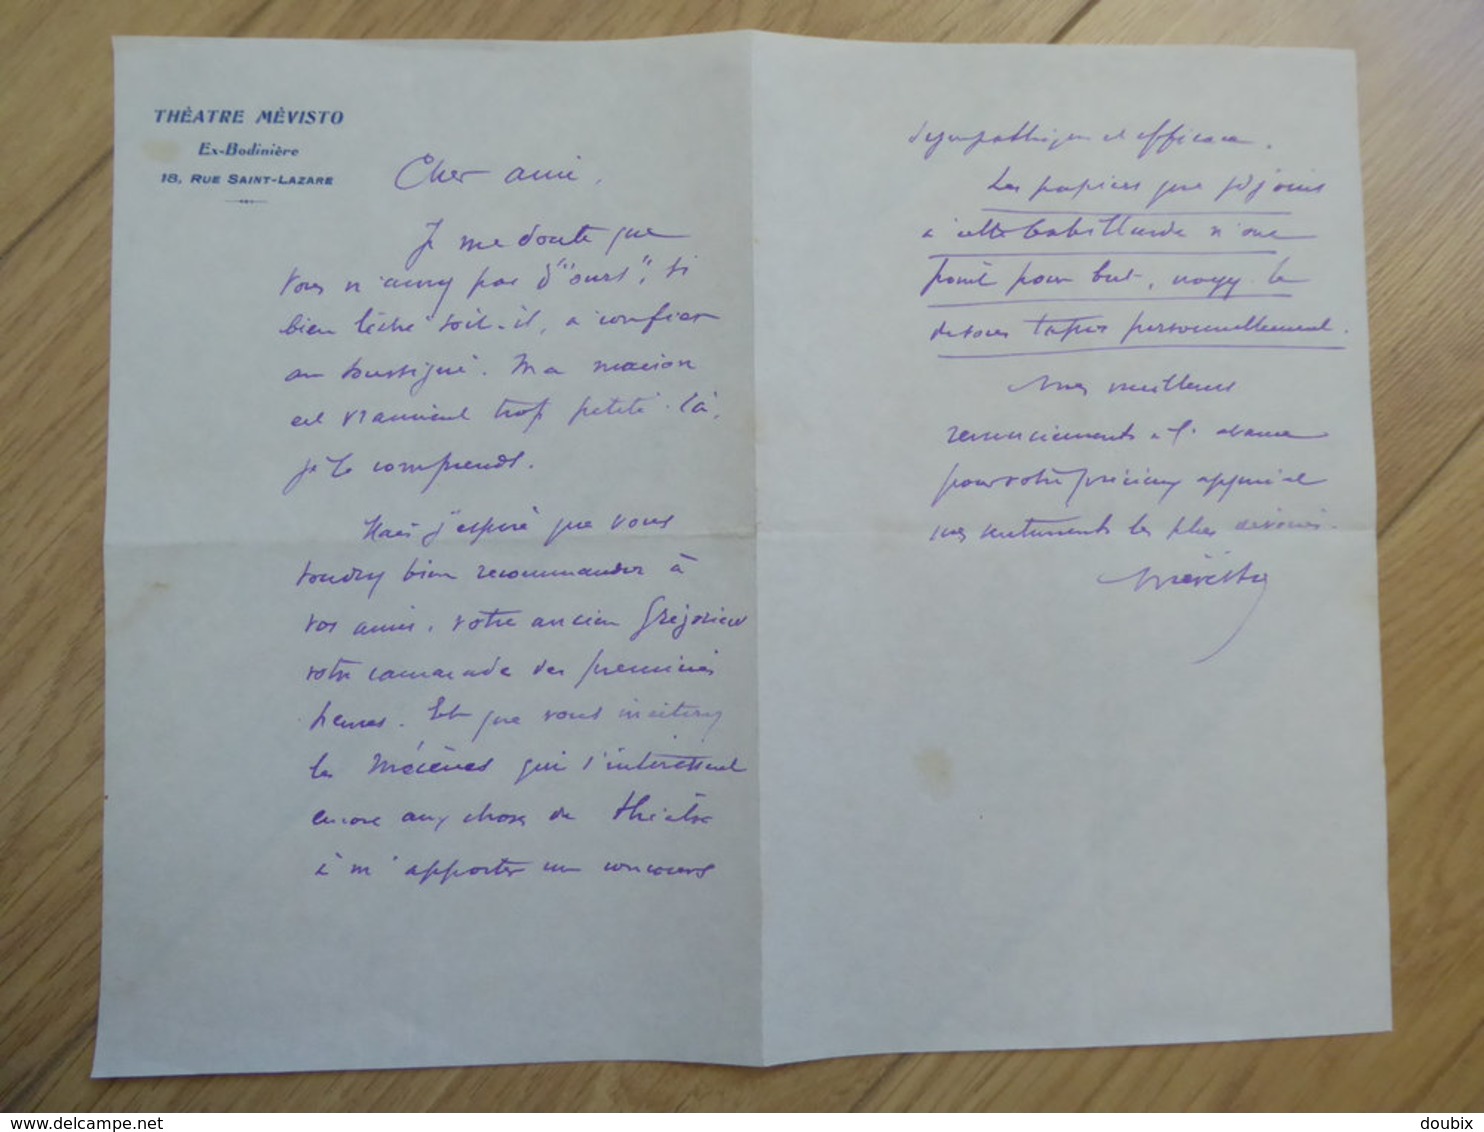 THÈATRE MÈVISTO
Ex-Bodinière
18, RUE SAINT-LAZARE
Cher ami,
Je me doute que
vous n'aurez pas d'"ours", si
bien léché soit-il, à confier
au soussigné. Ma maison
est vraiment trop petite. Cà,
je le comprends.
Mais j'espère que vous
voudrez bien recommander à
vos amis, votre ancien Grégorien
votre camarade des premières
heures. Et que vous inciterez
les Mécènes qui s'intéressent
encore aux choses de théâtre
à m'apporter un concours
sympathique et efficace.
Les papiers que je joins
à cette babillarde n'ont
point pour but, croyez-le
de vous taper personnellement.
Mes meilleurs
remerciements à l'avance
pour votre précieux appui et
mes sentiments les plus dévoués.
Mévisto
www.delcampe.net
doubix